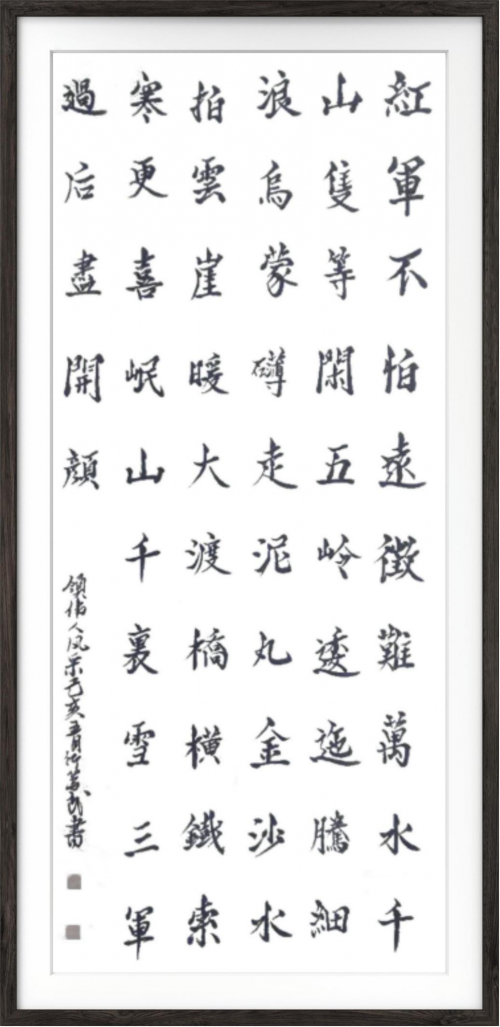 紅軍不怕遠徵難萬水千
山隻等閑五岭逶迤騰細
浪烏蒙礴走泥丸金沙水
拍雲崖暖大渡橋橫鐵索
寒更喜岷山千裏雪三軍
過后盡開顏
領伟人风采己亥月書